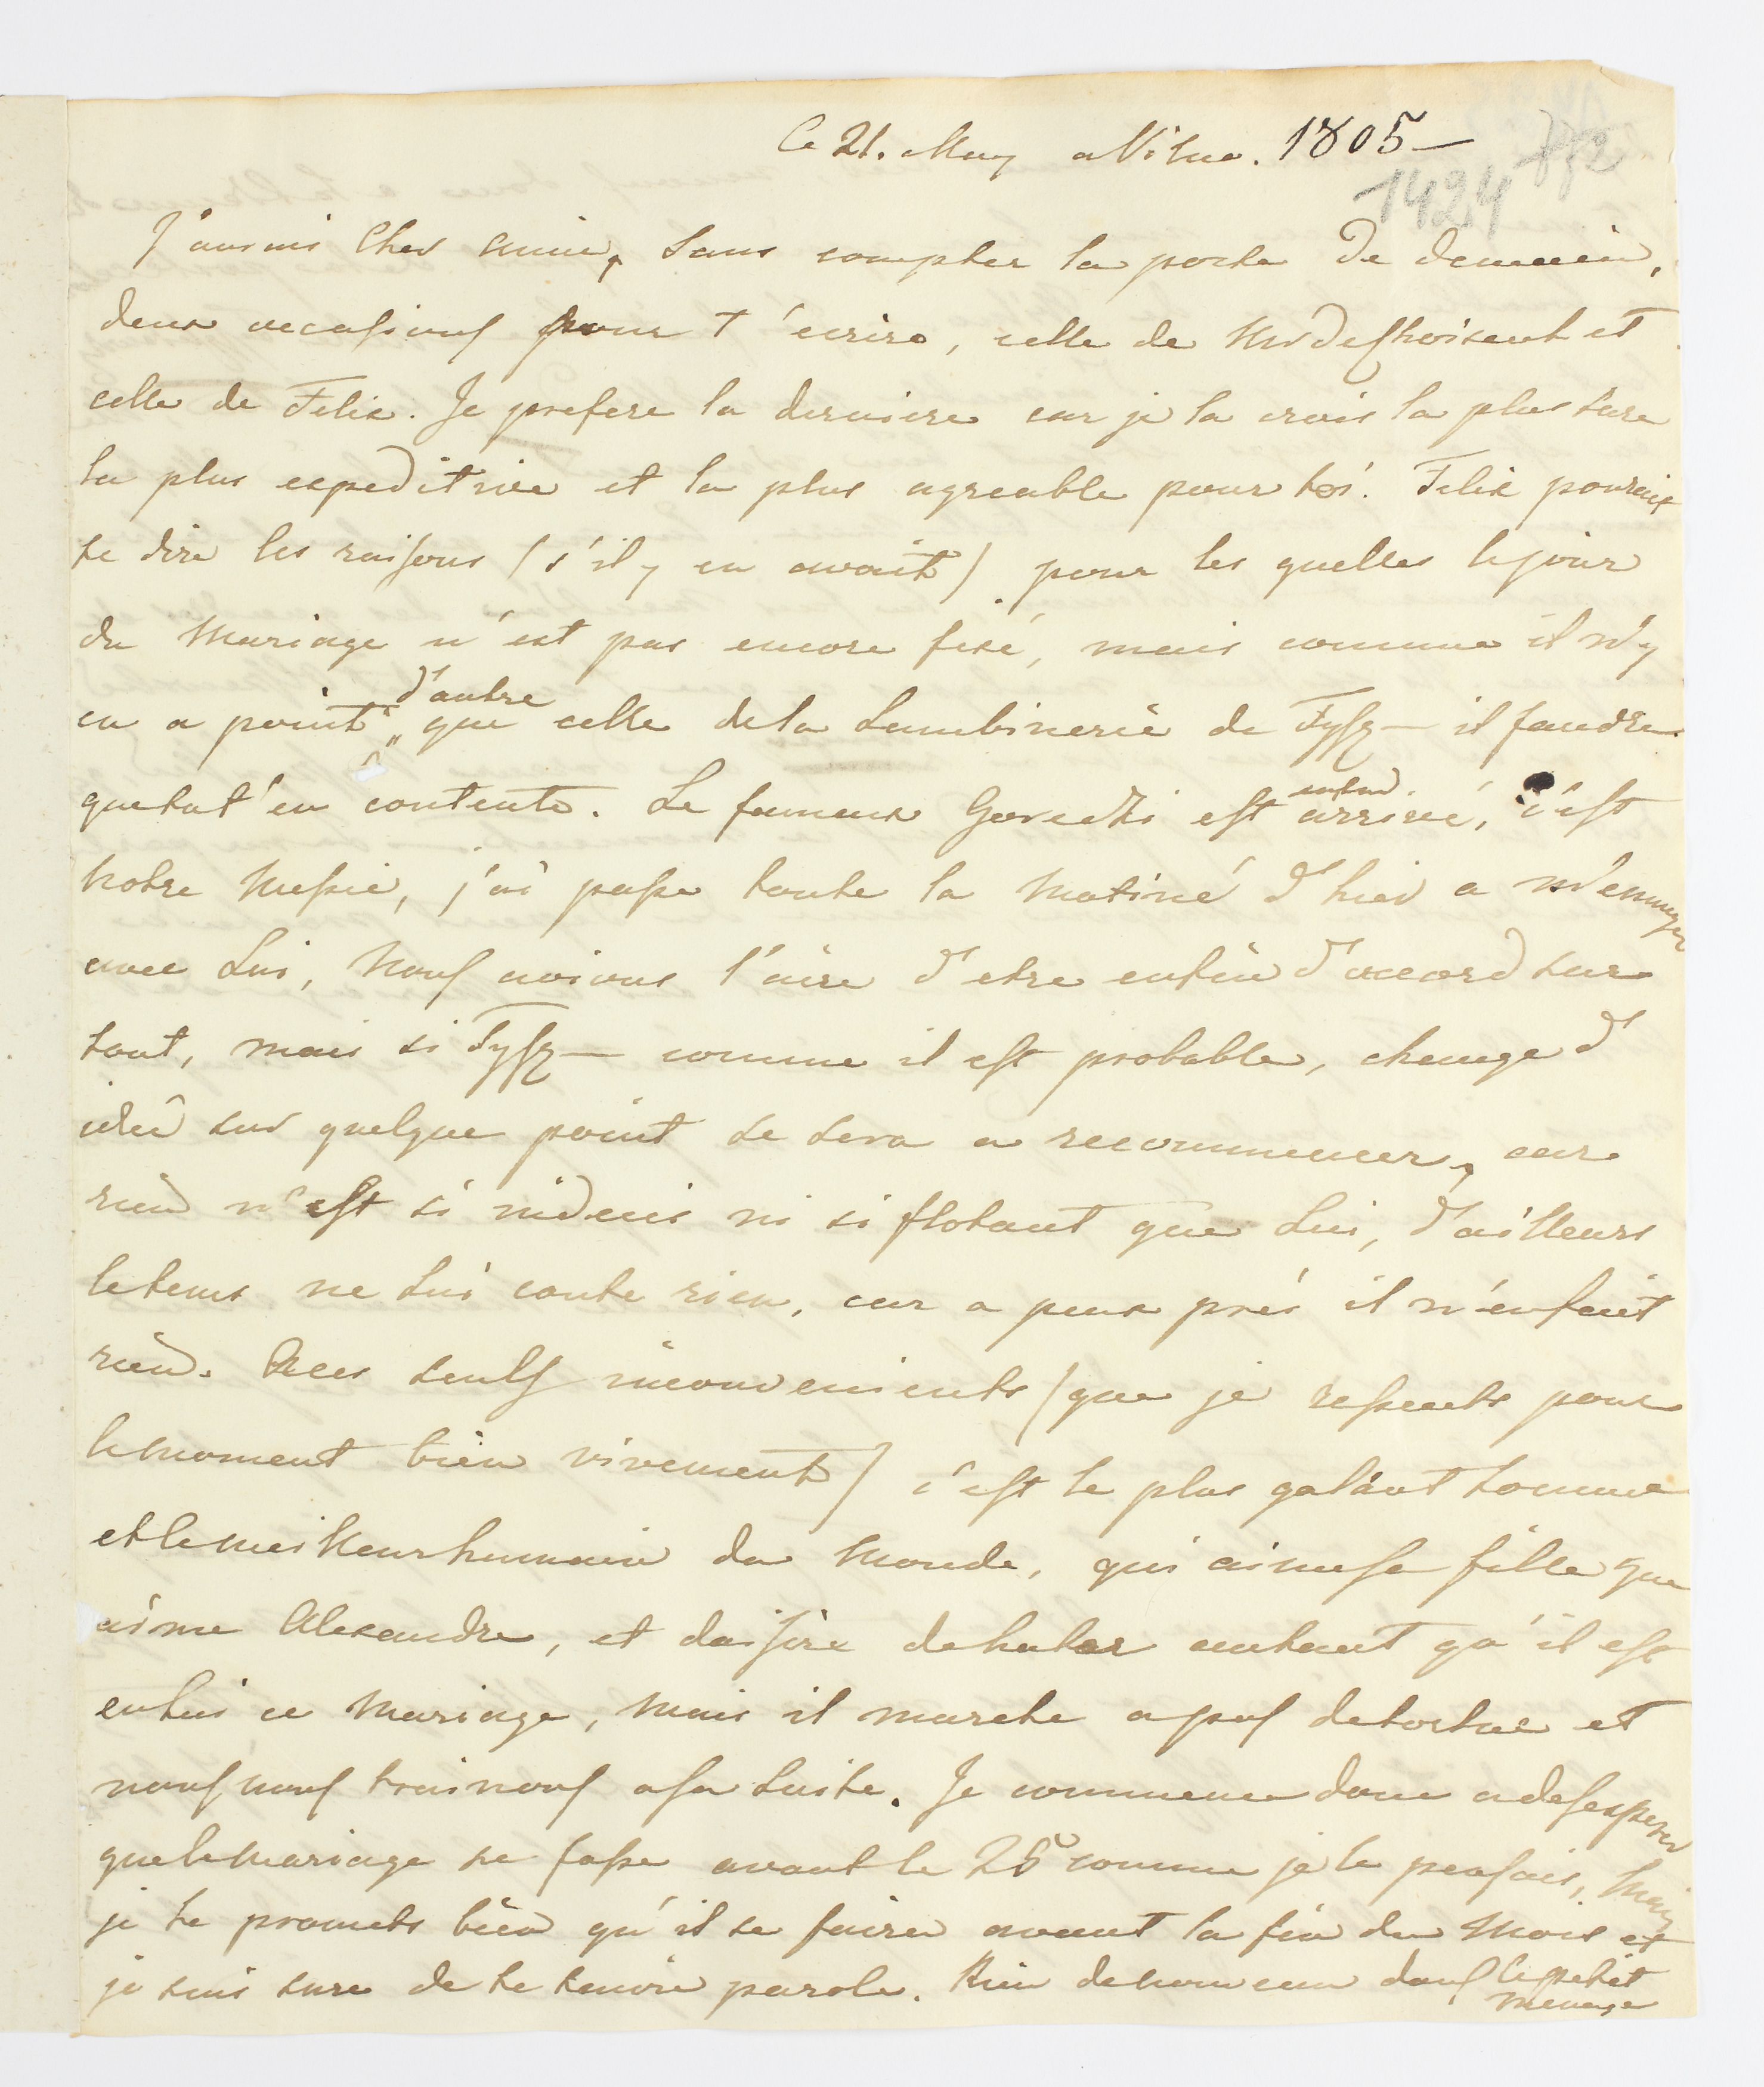 Ce 21. May a Vilna. 1805 —
772
1424
J'aurais Cher Amie, sans compter la poste de demain,
deux occasions pour t'ecrire, celle de Mr de Choiseul et
celle de Felix. Je prefere la derniere car je la crois la plus sure
la plus expeditive et la plus agreable pour toi. Felix pourait
te dire les raisons (s'il y en avait) pour les quelles le jour
du Mariage n'est pas encore fixé, mais comme il n'y
en a point d'autre que celle de la Lambinerie de Tysz— il faudra
que tu t'en contente. Le fameux Gorecki est enfin arrivé, c'est
notre Messie, j'ai passe toute la Matiné d'hier a m'ennuyer
avec Lui, Nous avions l'aire d'etre enfin d'accord sur
tout, mais si Tysz— comme il est probable, change d'
idée sur quelque point se sera a recommencer, car
rien n'est si indecis ni si flotant que Lui, d'ailleurs
le tems ne Lui coute rien, car a peux prés il n'en fait
rien. A ces seuls inconvenients (que je ressents pour
le moment bien vivement) c'est le plus galant homme
et le meilleur humain du Monde, qui aime sa fille que
aime Alexandre, et daisire de hater autant qu'il est
en lui ce Mariage, Mais il marche a pas de tortue et
nous nous trainons a sa suite. Je commence donc a desesperer
que le Mariage se fasse avant le 26 comme je le pensais, Mais
je te promets bien qu'il se faira avant la fin du Mois et
je suis sure de te tenire parole. Rien de nouveau dans le petit
menage